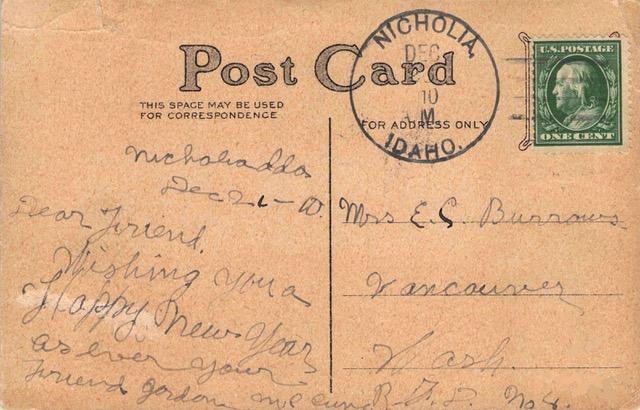 Post Card
THIS SPACE MAY BE USED
FOR CORRESPONDENCE
FOR ADDRESS ONLY
NICHOLIA,
DEC
10
M
IDAHO.
U.S. POSTAGE
ONE CENT
Nicholia Ida
Dec 21-10
Dear Friend.
Wishing you a
Happy New Year
as ever your
Friend Gordon
Mrs E.C. Burrows
Vancouver
Wash.
R.F.D. No 4.